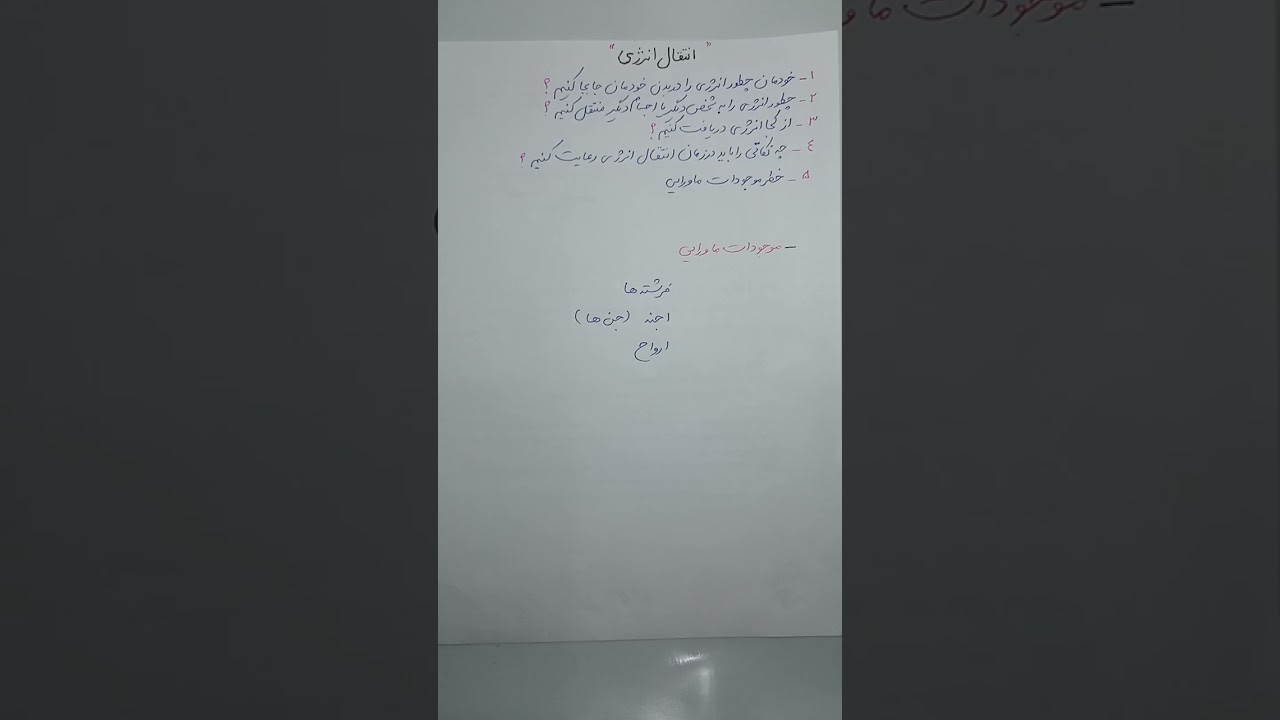 "انتقال انرژی"
۱- خودمان چطور انرژی را در بدن خودمان جابجا کنیم؟
۲- چطور انرژی را به شخص دیگر یا اجسام دیگر منتقل کنیم؟
۳- از کجا انرژی دریافت کنیم؟
٤- چه نکاتی را باید در زمان انتقال انرژی رعایت کنیم؟
۵- خطر موجودات ماورایی
- موجودات ماورایی
فرشته ها
اجنه (جن ها)
ارواح